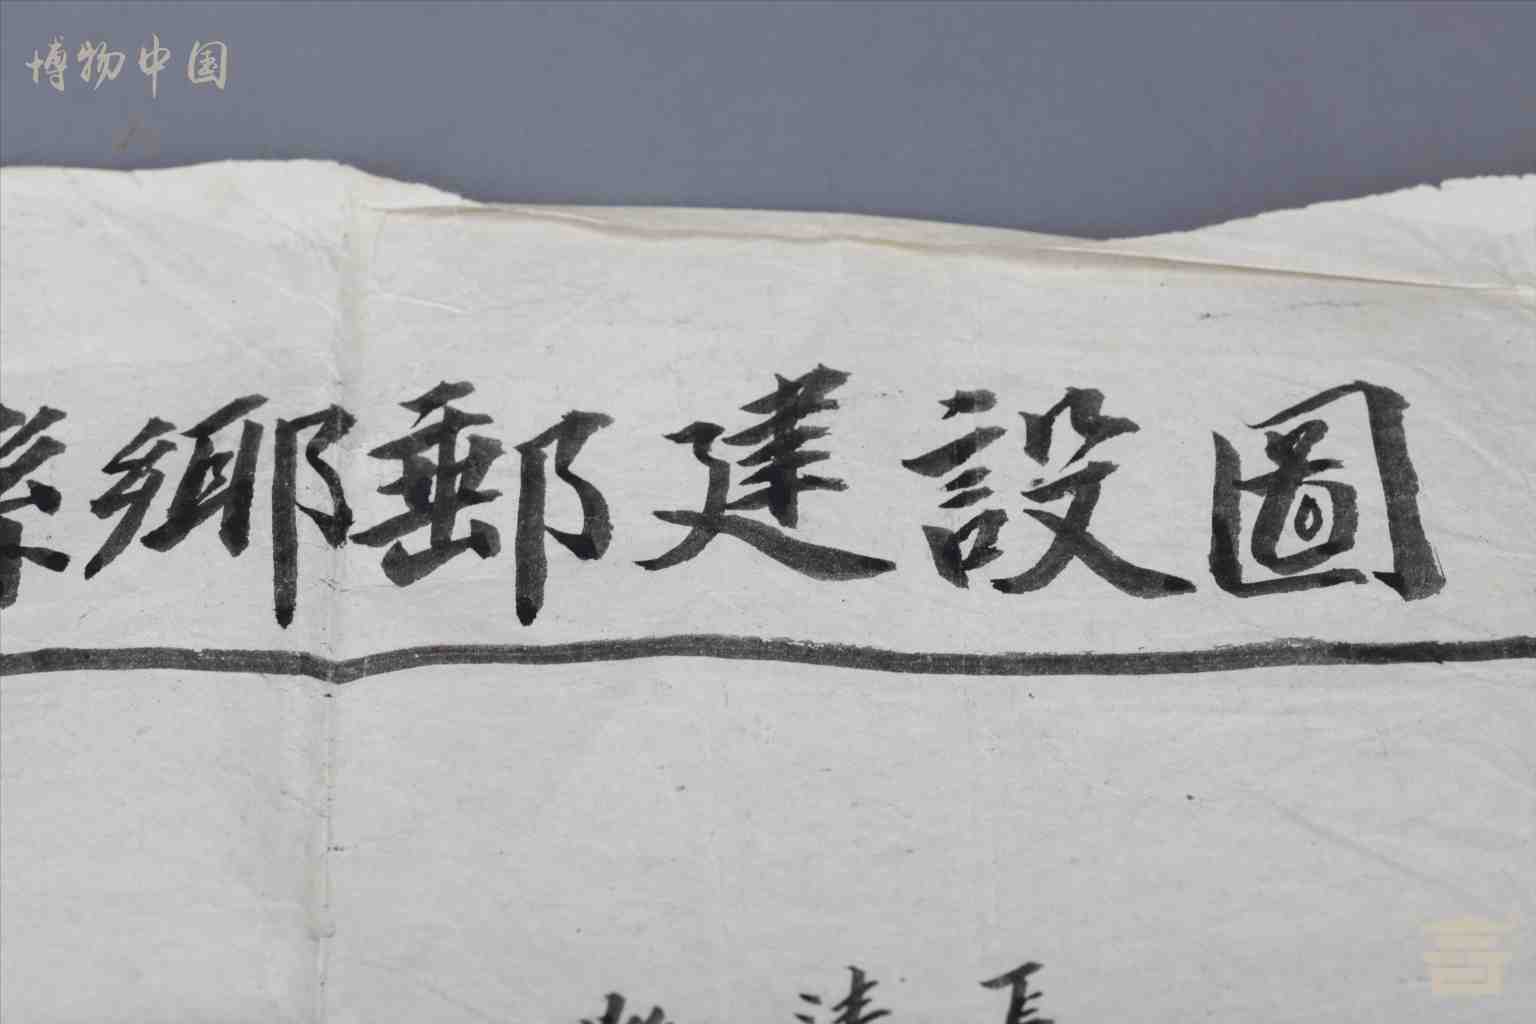 博物中国
鄉郵建設圖
清長